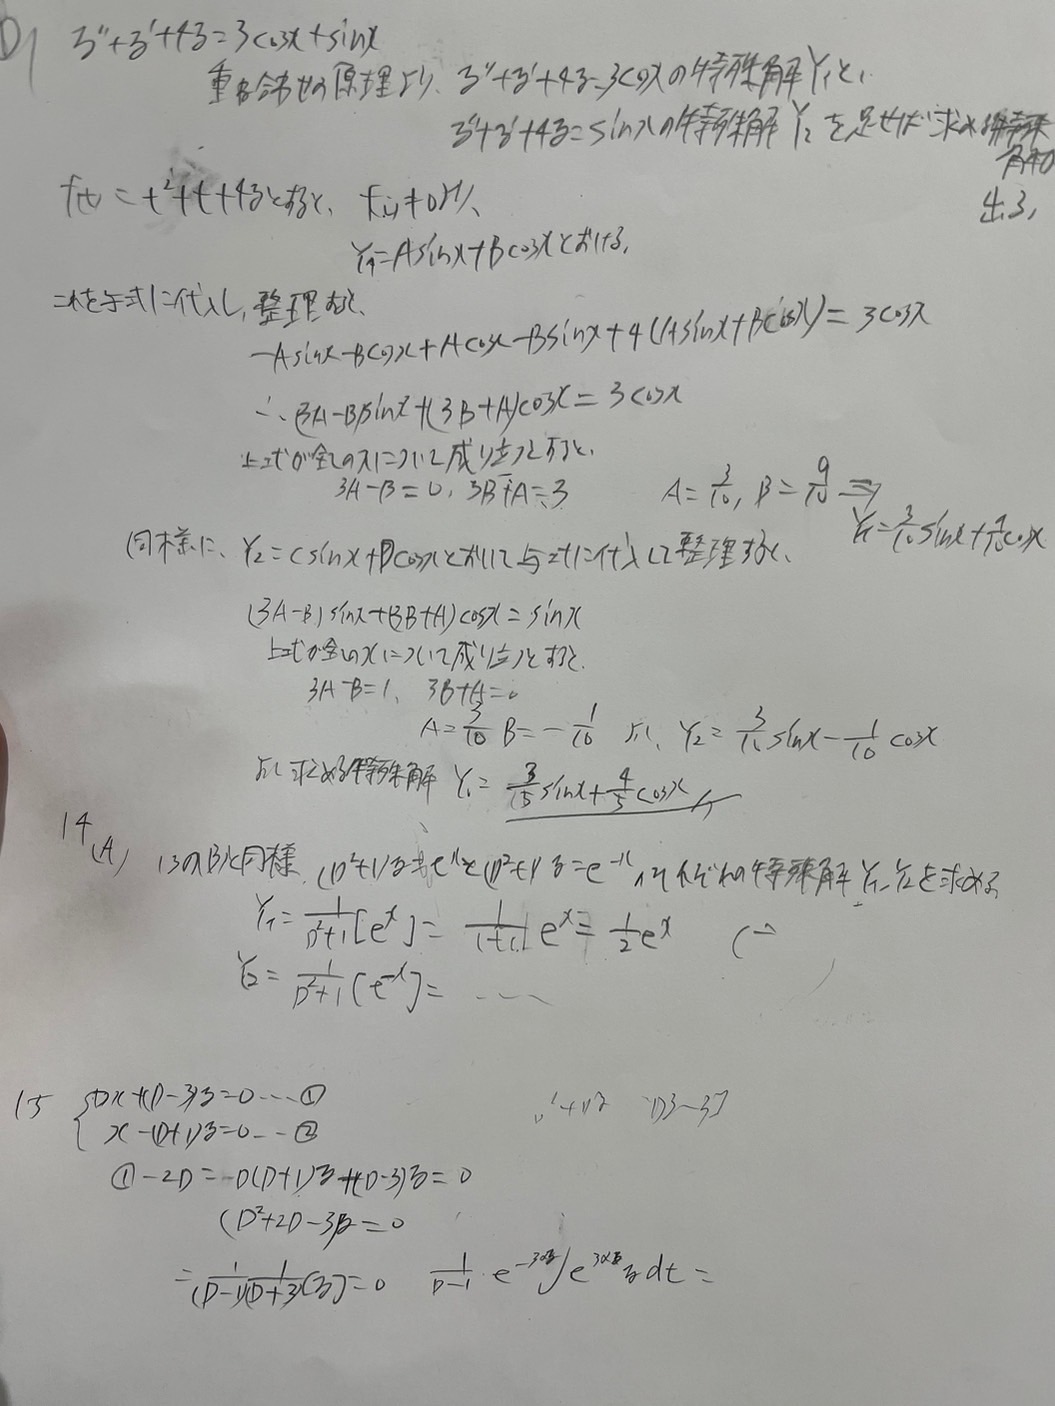 D1 z''+z'+4z=3cosx+sinx
重ね合わせの原理より、z''+z'+4z=3cosxの特殊解Y₁と、
z''+z'+4z=sinxの特殊解Y₂を足せば求める特殊解
出る。
f(t)=t²+t+4zとすると、f(i)≠0より、
Y₁=Asinx+Bcosxとおける。
これを与式に代入し、整理すると、
-Asinx-Bcosx+Acosx-Bsinx+4(Asinx+Bcosx)=3cosx
∴(3A-B)sinx+(3B+A)cosx=3cosx
上式が全てのxについて成り立つとすると、
3A-B=0, 3B+A=3 A=3/10, B=9/10 ⇒
Y₁=3/10sinx+9/10cosx
同様に、Y₂=Csinx+Dcosxとおいて与式に代入して整理すると、
(3A-B)sinx+(3B+A)cosx=sinx
上式が全てのxについて成り立つとすると、
3A-B=1、3B+A=0
A=3/10 B=-1/10 より、Y₂=3/10sinx-1/10cosx
より求める特殊解 Y₁=3/5sinx+4/5cosx
14(A) 13の(B)と同様、(D²+1)z=eˣと(D²+1)z=e⁻ˣ、それぞれの特殊解Y₁、Y₂を求める
Y₁=1/(D²+1)[eˣ]=1/(1+1)eˣ=1/2eˣ
Y₂=1/(D²+1)[e⁻ˣ]=
15 {Dx+(D-3)z=0…①
x-(D+1)z=0…②
①-2D=-D(D+1)z+(D-3)z=0
(D²+2D-3)z=0
=1/(D-1) 1/(D+3)[z]=0 1/(D-1)・